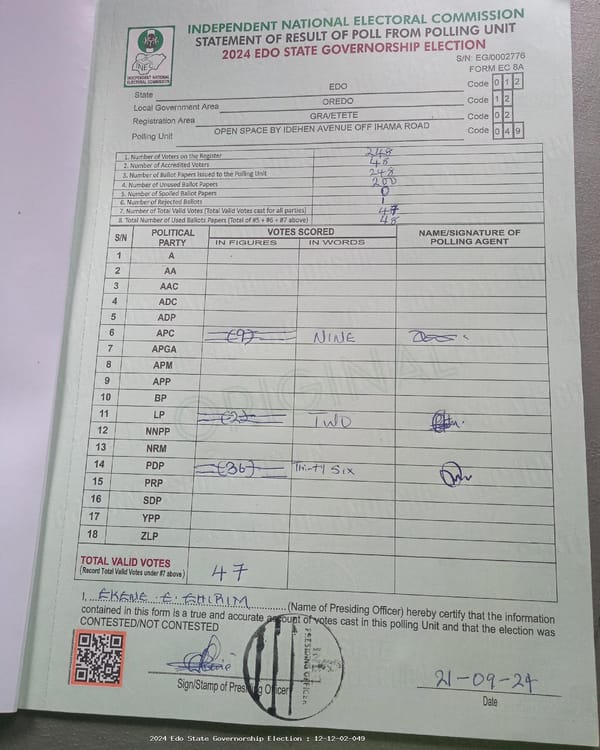 INDEPENDENT NATIONAL ELECTORAL COMMISSION
STATEMENT OF RESULT OF POLL FROM POLLING UNIT
2024 EDO STATE GOVERNORSHIP ELECTION
S/N: EG/0002776
FORM EC 8A
INEC
INDEPENDENT NATIONAL
ELECTORAL COMMISSION
State EDO Code 0 1 2
Local Government Area OREDO Code 1 2
Registration Area GRA/ETETE Code 0 2
Polling Unit OPEN SPACE BY IDEHEN AVENUE OFF IHAMA ROAD Code 0 4 9
1. Number of Voters on the Register 248
2. Number of Accredited Voters 48
3. Number of Ballot Papers Issued to the Polling Unit 248
4. Number of Unused Ballot Papers 200
5. Number of Spoiled Ballot Papers 0
6. Number of Rejected Ballots 1
7. Number of Total Valid Votes (Total Valid Votes cast for all parties) 47
8. Total Number of Used Ballots Papers (Total of #5 + #6 + #7 above) 48
S/N POLITICAL PARTY VOTES SCORED NAME/SIGNATURE OF POLLING AGENT
IN FIGURES IN WORDS
1 A
2 AA
3 AAC
4 ADC
5 ADP
6 APC (9) NINE
7 APGA
8 APM
9 APP
10 BP
11 LP (2) TWO
12 NNPP
13 NRM
14 PDP (36) Thirty Six
15 PRP
16 SDP
17 YPP
18 ZLP
ORIGINAL
TOTAL VALID VOTES
(Record Total Valid Votes under #7 above) 47
I, EKENE .E. EHIRIM (Name of Presiding Officer) hereby certify that the information
contained in this form is a true and accurate account of votes cast in this polling Unit and that the election was
CONTESTED/NOT CONTESTED
PRESIDING OFFICER
Sign/Stamp of Presiding Officer
21-09-24
Date
2024 Edo State Governorship Election : 12-12-02-049